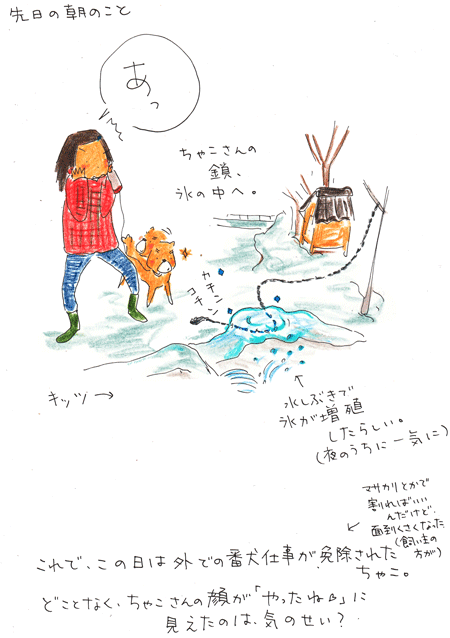 先日の朝のこと
あっ
ちゃこさんの
鎖、
氷の中へ。
カチンコチン
キッツ→
↑
水しぶきで
氷が増殖
したらしい。
(夜のうちに一気に)
マサカリとかで
割ればいい
んだけど、
面到くさくなった
(飼い主の
方が)
これで、この日は外での番犬仕事が免除された
ちゃこ。
どことなく、ちゃこさんの顔が「やったね♭」に
見えたのは、気のせい?